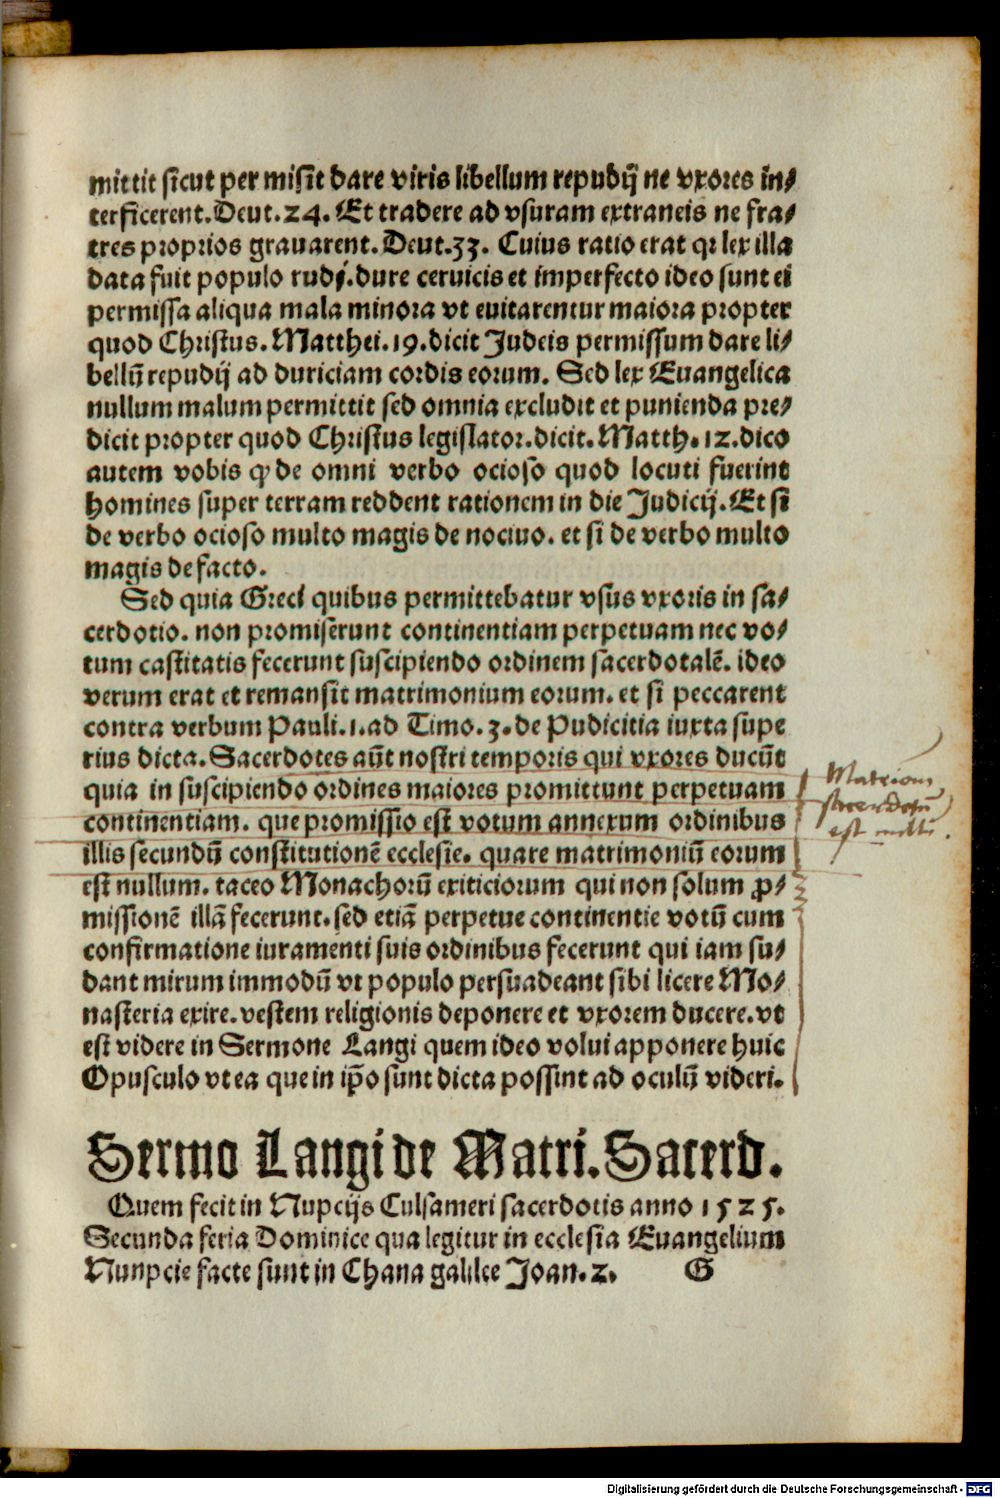 mittit sicut per misit dare viris libellum repudij ne vxores in/
terficerent. Deut. 24. Et tradere ad vsuram extraneis ne fra/
tres proprios grauarent. Deut. 33. Cuius ratio erat qꝛ lex illa
data fuit populo rudi. dure ceruicis et imperfecto ideo sunt ei
permissa aliqua mala minora vt euitarentur maiora propter
quod Christus. Matthei. 19. dicit Judeis permissum dare li/
bellū repudij ad duriciam cordis eorum. Sed lex Euangelica
nullum malum permittit sed omnia excludit et punienda pre/
dicit propter quod Christus legislator. dicit. Matth. 12. dico
autem vobis ꝙ de omni verbo ocioso quod locuti fuerint
homines super terram reddent rationem in die Judicij. Et si
de verbo ocioso multo magis de nociuo. et si de verbo multo
magis de facto.
Sed quia Greci quibus permittebatur vsus vxoris in sa/
cerdotio. non promiserunt continentiam perpetuam nec vo/
tum castitatis fecerunt suscipiendo ordinem sacerdotalē. ideo
verum erat et remansit matrimonium eorum. et si peccarent
contra verbum Pauli. 1. ad Timo. 3. de Pudicitia iuxta supe
rius dicta. Sacerdotes aūt nostri temporis qui vxores ducūt
quia in suscipiendo ordines maiores promittunt perpetuam
continentiam. que promissio est votum annexum ordinibus
illis secundū constitutionē ecclesie. quare matrimoniū eorum
est nullum. taceo Monachorū exiticiorum qui non solum ꝓ/
missionē illā fecerunt. sed etiā perpetue continentie votū cum
confirmatione iuramenti suis ordinibus fecerunt qui iam su/
dant mirum immodū vt populo persuadeant sibi licere Mo/
nasteria exire. vestem religionis deponere et vxorem ducere. vt
est videre in Sermone Langi quem ideo volui apponere huic
Opusculo vt ea que in ip̄o sunt dicta possint ad oculū videri.
Matriom
sacerdotū
est
Sermo Langi de Matri. Sacerd.
Quem fecit in Nupcijs Culsameri sacerdotis anno 1525.
Secunda feria Dominice qua legitur in ecclesia Euangelium
Nunpcie facte sunt in Chana galilee Joan. 2. G
Digitalisierung gefördert durch die Deutsche Forschungsgemeinschaft - DFG